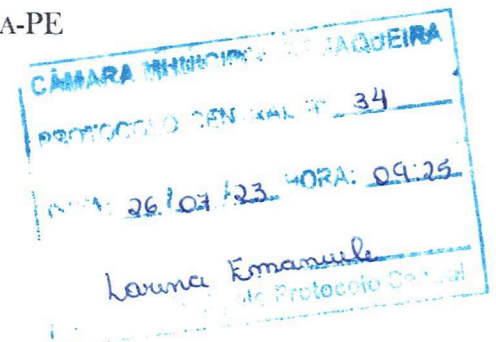 A-PE
CÂMARA MUNICIPAL DE JAQUEIRA
PROTOCOLO GERAL Nº 34
DATA: 26/07/23 HORA: 09:25
Emanuele
de Protocolo Geral